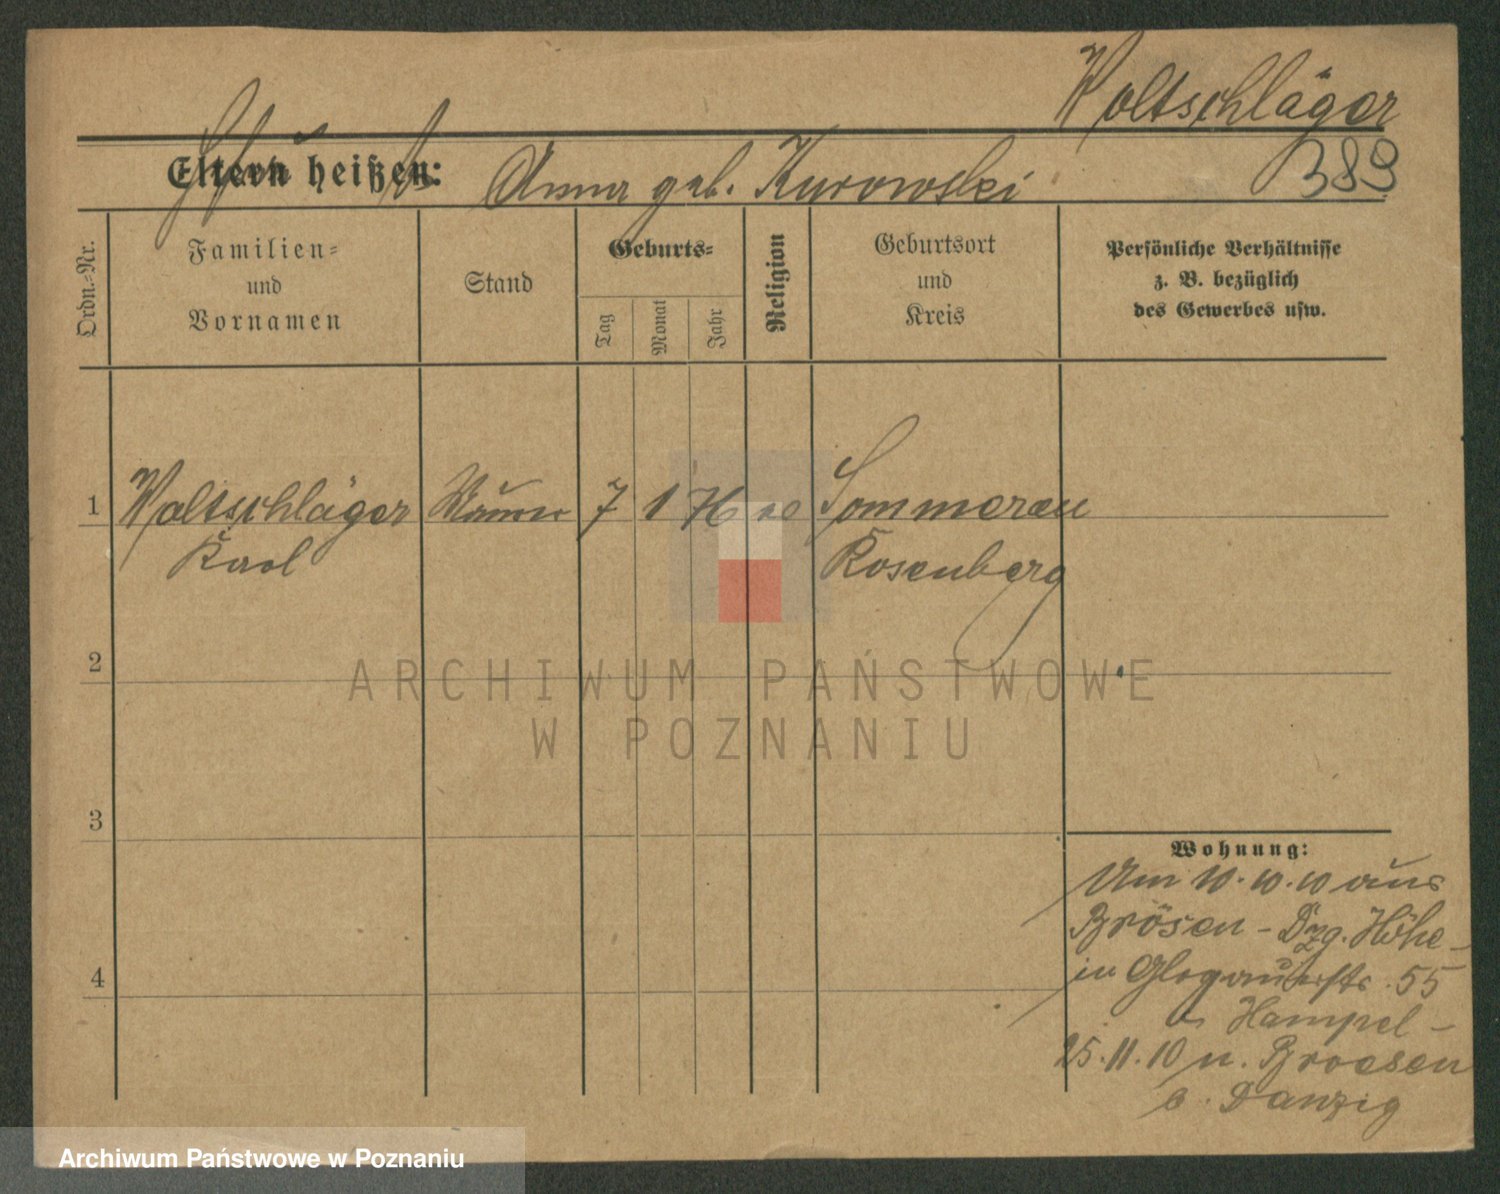 Woltschläger
389
Eltern heißen: Anna geb. Kurowski
Ordn.-Nr.
Familien-
und
Vornamen
Stand
Geburts-
Tag
Monat
Jahr
Religion
Geburtsort
und
Kreis
Persönliche Verhältnisse
z. B. bezüglich
des Gewerbes usw.
1 Woltschläger Maurer 7 1 76 Sommerau
Karl Rosenberg
2
3
4
Wohnung:
Am 10.10.10 aus
Brösen - Dzg. Höhe -
in Glogauerstr. 55
b. Hampel -
25.11.10 n. Broesen
b. Danzig
ARCHIWUM PAŃSTWOWE
W POZNANIU
Archiwum Państwowe w Poznaniu